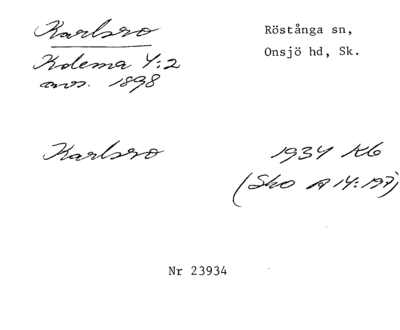 Karlsro
Röstånga sn,
Onsjö hd, Sk.
Kdema 4:2
avs. 1898
Karlsro
1934 Kb
(Sko A 14:197)
Nr 23934